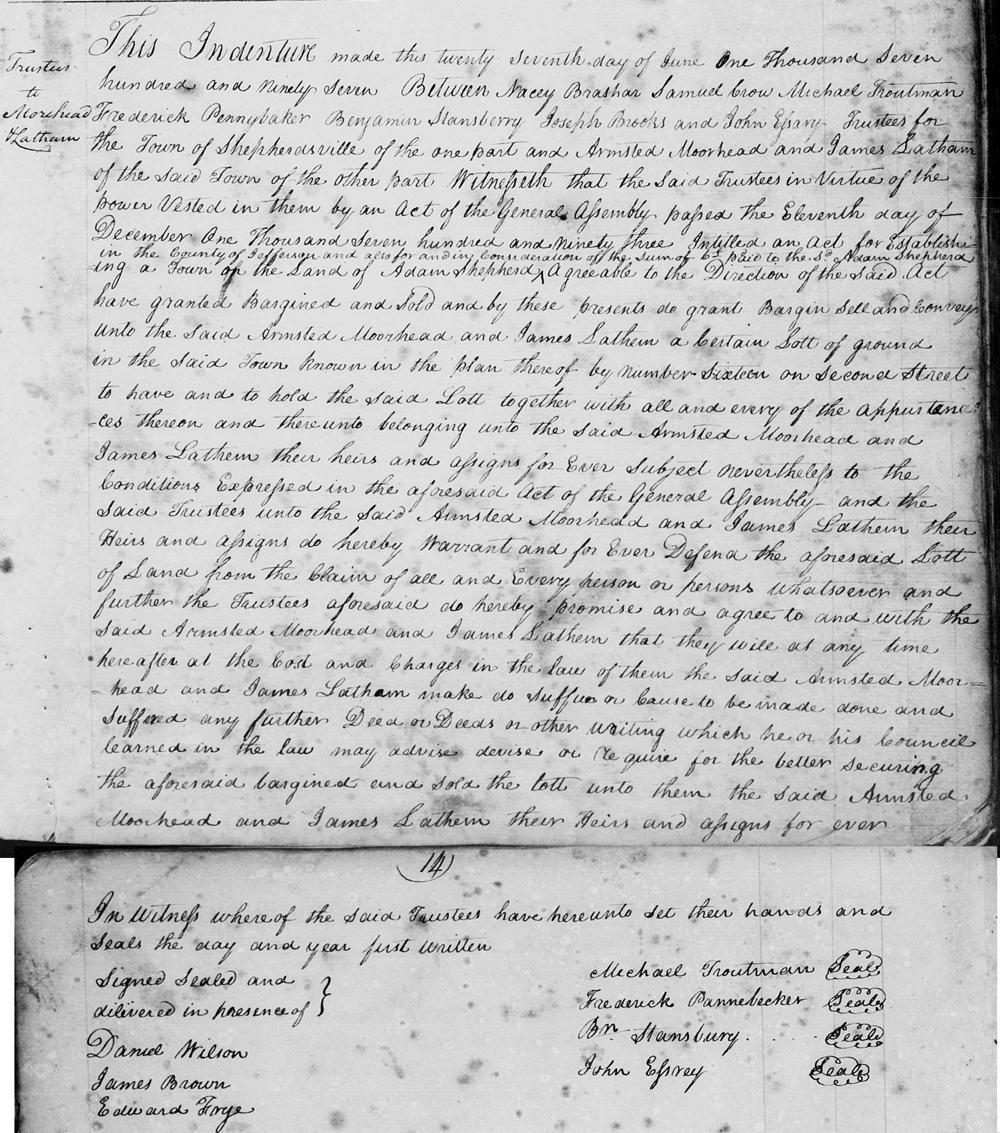 Trustees
to
Morehead
& Latham
This Indenture made this twenty Seventh day of June One Thousand Seven
hundred and Ninety Seven Between Nacey Brashar Samuel Crow Michael Troutman
Frederick Pennybaker Benjamin Stansberry Joseph Brooks and John Essary Trustees for
the Town of Shepherdsville of the one part and Armsted Moorhead and James Latham
of the Said Town of the other part Witnesseth that the Said Trustees in Virtue of the
power Vested in them by an Act of the General Assembly passed the Eleventh day of
December One Thousand Seven hundred and Ninety three Intitled an Act for Establish-
in the County of Jefferson and also for and in Consideration of the Sum of 6£ paid to the Sd Adam Shepherd
ing a Town on the Land of Adam Shepherd ^ Agreeable to the Direction of the Said Act
have granted Bargined and Sold and by these presents do grant Bargin Sell and Convey
unto the Said Armsted Moorhead and James Lathem a Certain Lott of ground
in the Said Town Known in the plan thereof by Number Sixteen on Second Street
to have and to hold the Said Lott together with all and every of the appurtenan
-ces thereon and thereunto belonging unto the Said Armsted Moorhead and
James Lathem their heirs and assigns for Ever Subject nevertheless to the
Conditions Expressed in the aforesaid Act of the General Assembly and the
Said Trustees unto the Said Armsted Moorhead and James Lathem their
Heirs and assigns do hereby Warrant and for Ever Defend the aforesaid Lott
of Land from the Claim of all and Every person or persons Whatsoever and
further the Trustees aforesaid do hereby promise and agree to and with the
Said Armsted Moorhead and James Lathem that they will at any time
hereafter at the Cost and Charges in the law of them the Said Armsted Moor=
=head and James Latham make do Suffer or Cause to be made done and
Suffered any further Deed or Deeds or other writing which he or his Council
learned in the law may advise devise or require for the better securing
the aforesaid bargined and sold the lott unto them the Said Armsted
Moorhead and James Lathem their Heirs and assigns for ever
14)
In Witness whereof the Said Trustees have hereunto Set their hands and
Seals the day and year first written
Signed Sealed and
delivered in presence of }
Daniel Wilson
James Brown
Edward Frye
Michael Troutman Seal
Frederick Pannebecker Seal
Bn Stansbury . . . Seal
John Essrey Seal